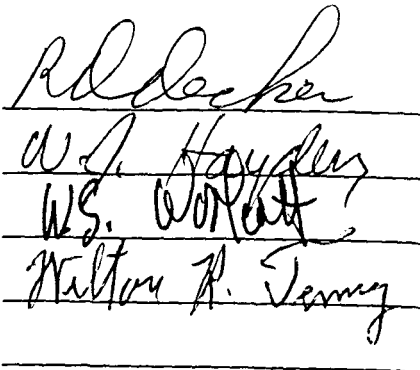 R D Decker
W. J. Hayden
W.S. Wolcott
Wilton R. Tenney